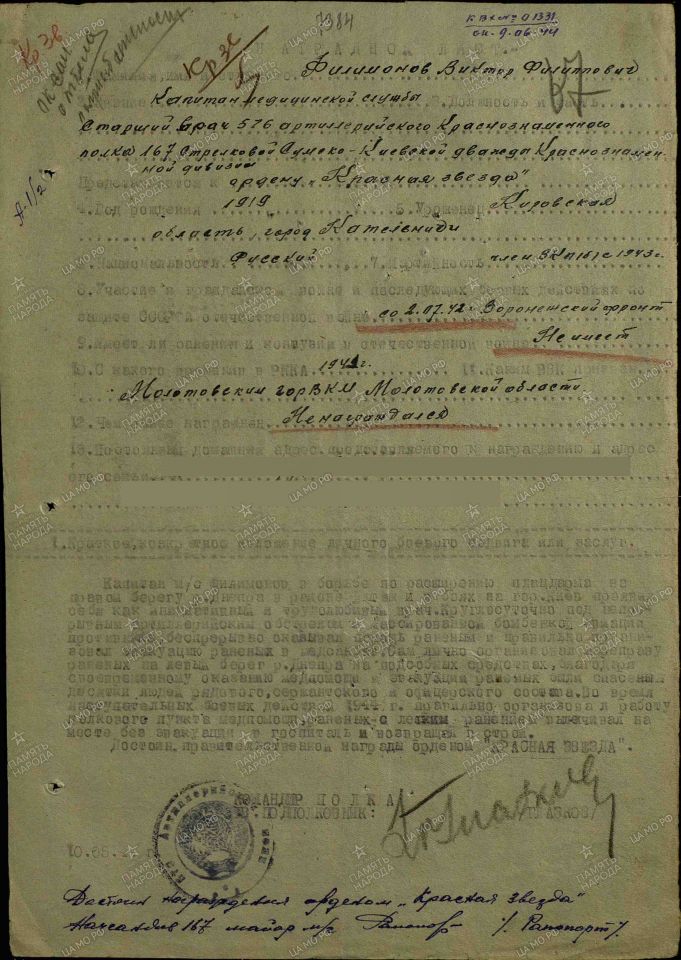 7384
КВх№ 01331
от 9.06.44
Кр Зв
Кр ЗС
НАГРАДНОЙ ЛИСТ.
67
Филимонов Виктор Филиппович
Капитан медицинской службы
Старший врач 576 артиллерийского Краснознаменного
полка 167 Стрелковой Сумско-Киевской дважды Краснознамен-
ной дивизии
Представляется к ордену "Красная звезда"
4.Год рождения 1919 5.Уроженец Кировская
область, город Кательничи
Русский
6.Национальность 7.Партийность член ВКП(б) с 1943г.
8.Участие в гражданской войне и последующих боевых действиях по
защите СССР в отечественной войне со 2.07.42. Воронежский фронт
9.Имеет ли ранения и контузии в отечественной войне Не имеет
10.С какого времени в РККА 1941г. 11.Каким РВК призван
Молотовским горВКМ Молотовской области
12.Чем ранее награжден Ненаграждался
13.Постоянный домашний адрес представляемого к награждению и адрес
его семьи
1.Краткое, конкретное изложение личного боевого подвига или заслуг.
Капитан м/с Филимонов в борьбе по расширению плацдарма на
правом берегу р.Днепра в районе и боях на гор.Киев проявил
себя как инициативный и трудолюбивый врач.Круглосуточно под непре-
рывным артиллерийским обстрелом и массированной бомбежкой авиации
противника беспрерывно оказывал помощь раненым и правильно органи-
зовал эвакуацию раненых в медсанбат.Сам лично организовал переправу
раненых на левый берег р.Днепра на подсобных средствах, благодаря
своевременному оказанию медпомощи и эвакуации раненых были спасены
десятки людей рядового, сержантского и офицерского состава.Во время
наступательных боевых действий 1944 г. правильно организовал работу
полкового пункта медпомощи, раненых с легким ранением вылечивал на
месте без эвакуации в госпиталь и возвращал в строй.
Достоин правительственной награды орденом "КРАСНАЯ ЗВЕЗДА".
КОМАНДИР ПОЛКА
ГВ.ПОДПОЛКОВНИК: /ГЛАЗКОВ/
10.05.
Достоин награждения орденом "Красная звезда"
Начсандив 167 майор м/с /Рапопорт/.